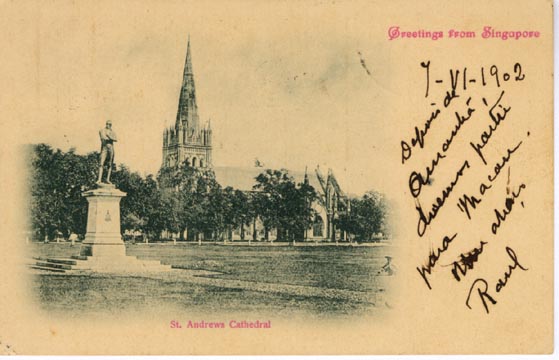 Greetings from Singapore
7-VI-1902
Depois de
Amanhã,
devemos partir
para Macau.
Raul
St. Andrews Cathedral